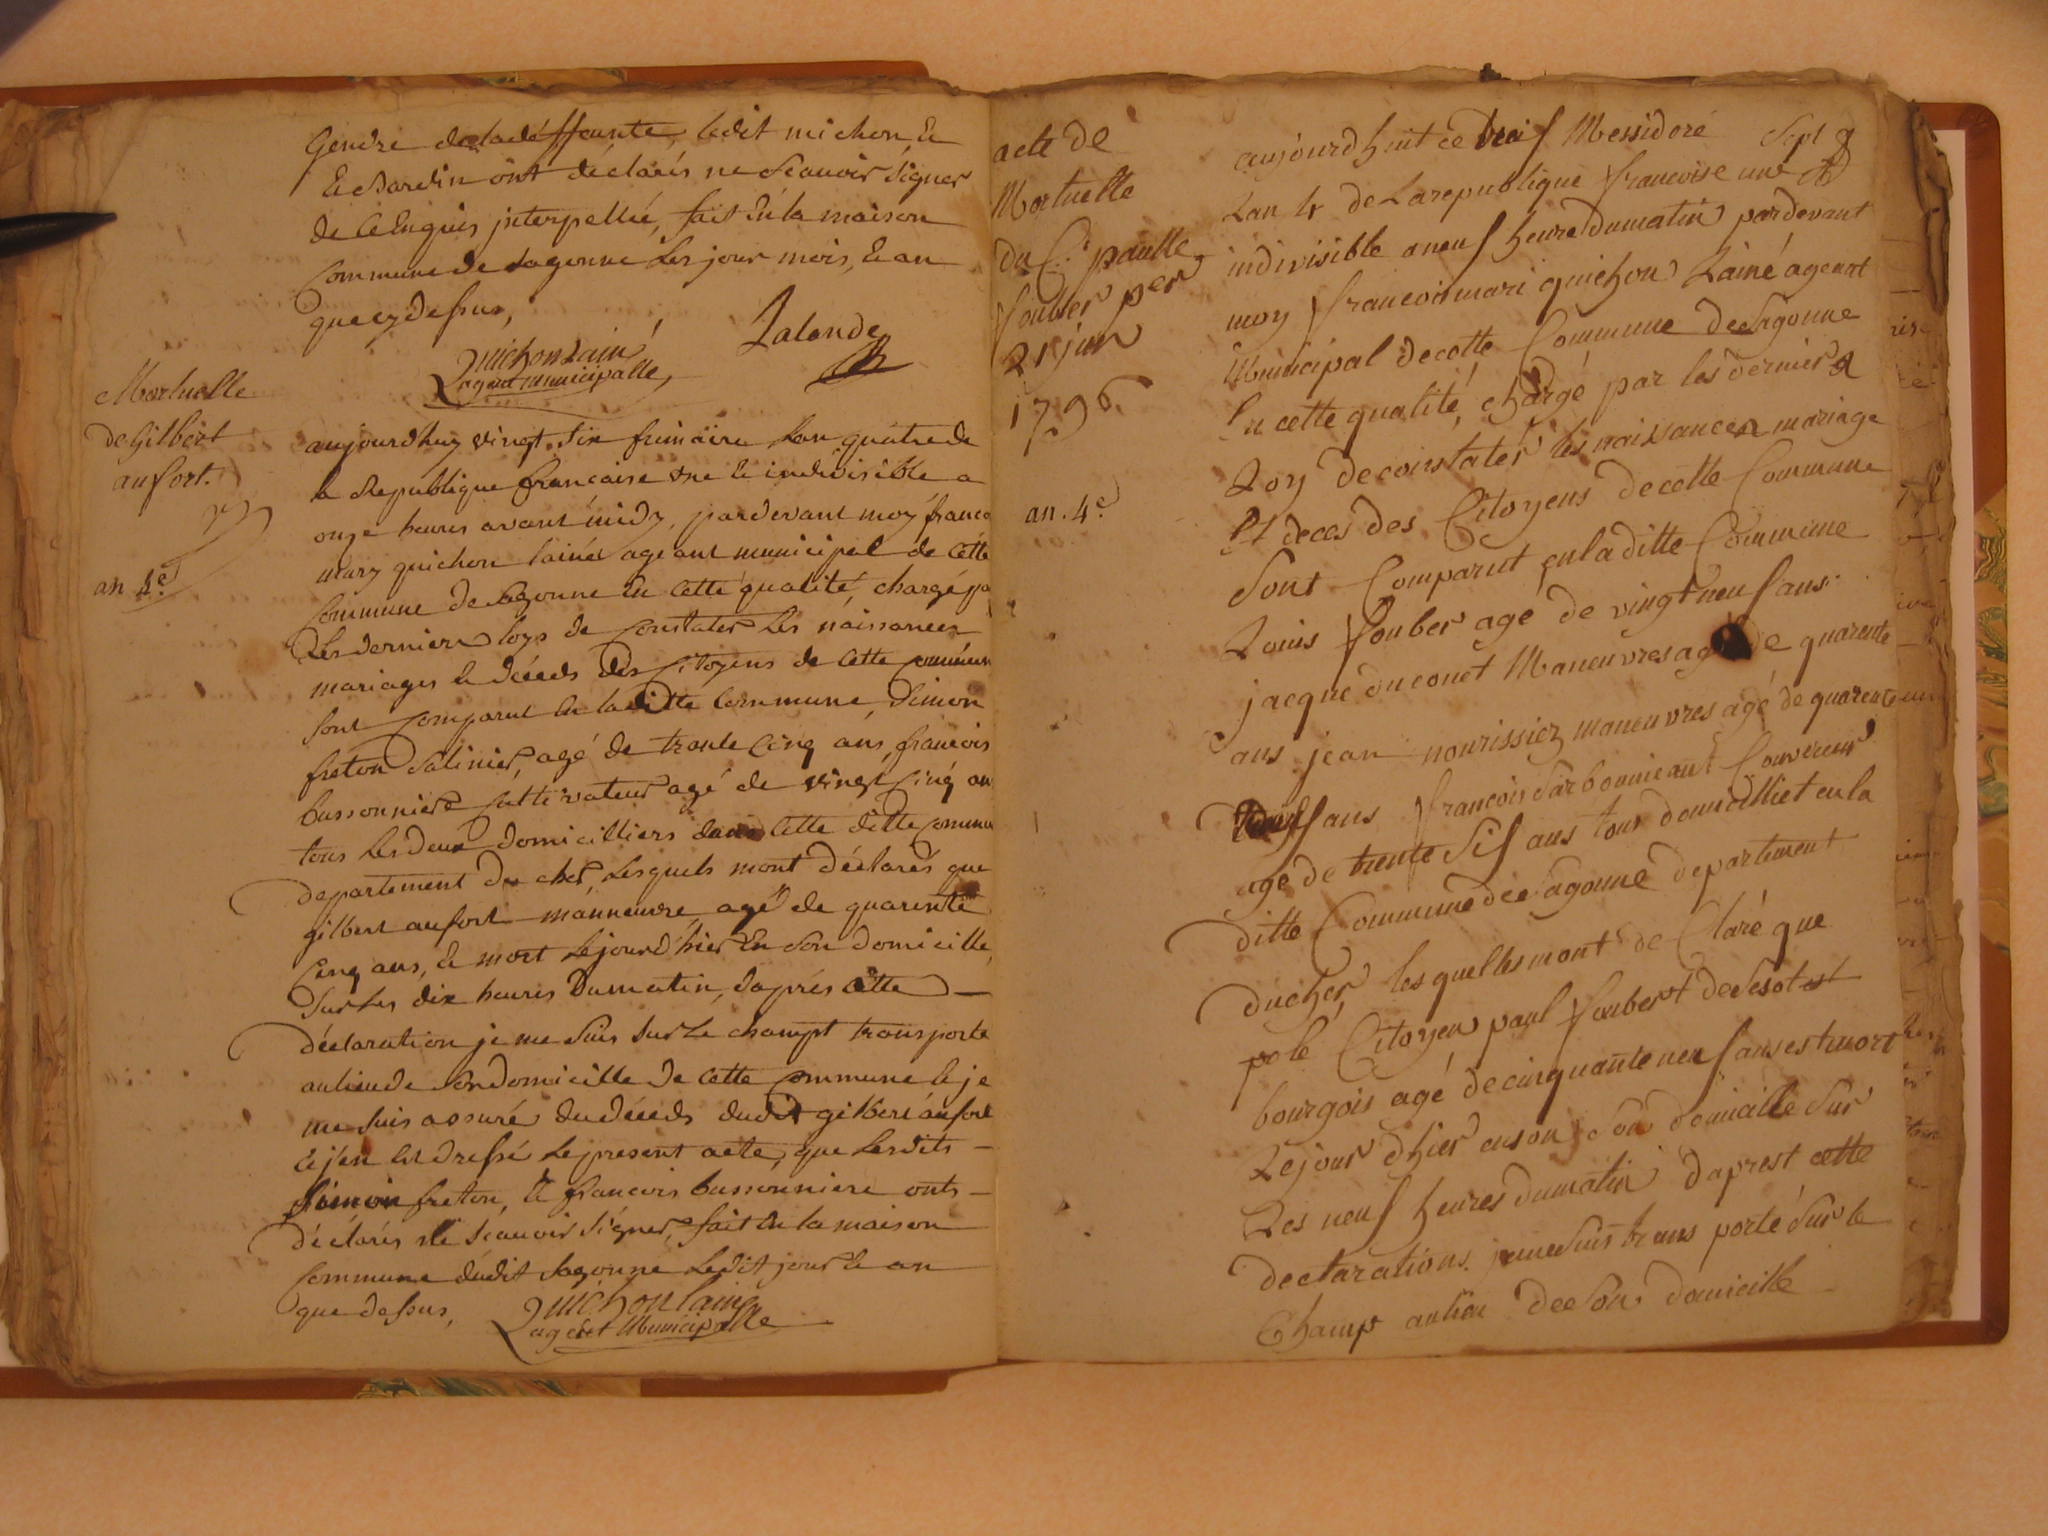 Gendre de la déffeunte, ledit michon Et
Et Bardin ônt déclarés ne Scauoir Signer
de Ce Enquis interpellé, fait En la maison
Commune de Sagonne Les jour mois, Et an
que cy dessus,
Quichon Lainé
Lagent municipalle,
Lalande
Mortuelle
de Gilbert
aufort.
an 4e
aujourdhuy vingt Six frimaire Lan quatre de
la République francaise une Et indivisible a
onze heures avant midy, pardevant moy franco
mary quichon lainé ageant municipal de Cette
Commune de Sagonne En Cette qualité, chargé pa
Les derniere loys de Constater Les naissances
mariages Et décéds des Citoyens de Cette Commun
Sont Comparut En la ditte Commune, Simon
freton Salinier, agé de trante Cinq ans, francois
bussonniere Cultivateur agé de vingt Cinq an
tous Les deux domicilliers dans Cette ditte Commu
departement du cher, Lesquels mont déclarés que
gilbert aufort manneuvre agé de quarente
Cinq ans, Et mort Le jourd'hier En Son domicille,
Sur Les dix heures du matin, daprés Cette
déclaration je me Suis Sur Le champt transporte
au lieu de Son domicille de Cette Commune Et je
me Suis assuré du décéds dudit gilbert aufort
Et j'en Est dressé Le present acte, que Lesdits
Simon freton, Et francois bussonniere onts
déclarés ne Scauoir Signer, fait En la maison
Commune dudit Sagonne Ledit jour Et an
que dessus,
Quichon Lainé
Lagent Municipalle
acte de
Mortuelle
du Ci: paulle
fouber per
21 juin
1796
an. 4e
aujourdhuit ce Messidore Sept
Lan 4 de La republique francoise une
indivisible a neuf heure du matin pardevant
moy francois mari quichon Lainé ageant
Municipal de cette Commune de Sagonne
En cette qualité, chargé par les dernier
Loy de constater les naissances mariage
Et deces des Citoyens de cette Commune
Sont Comparut en la ditte Commune
Louis fouber agé de vingt neuf ans
jacque Maneuvres agé de quarente
ans jean nourissiez maneuvres agé de quarente
ans francois Couvreur
age de trente Sif ans tous domicilliet en la
ditte Commune dee Sagonne departement
du cher, les quelles mont de Claré que
le Citoyen paul foubert
bourgois agé de cinquante neuf ans est mort
Le jour dhier en son Son domicille Sur
Les neuf heures du matin daprest cette
declarations je me Suis trans porté Sur le
Champ au lieu dee Son domicille